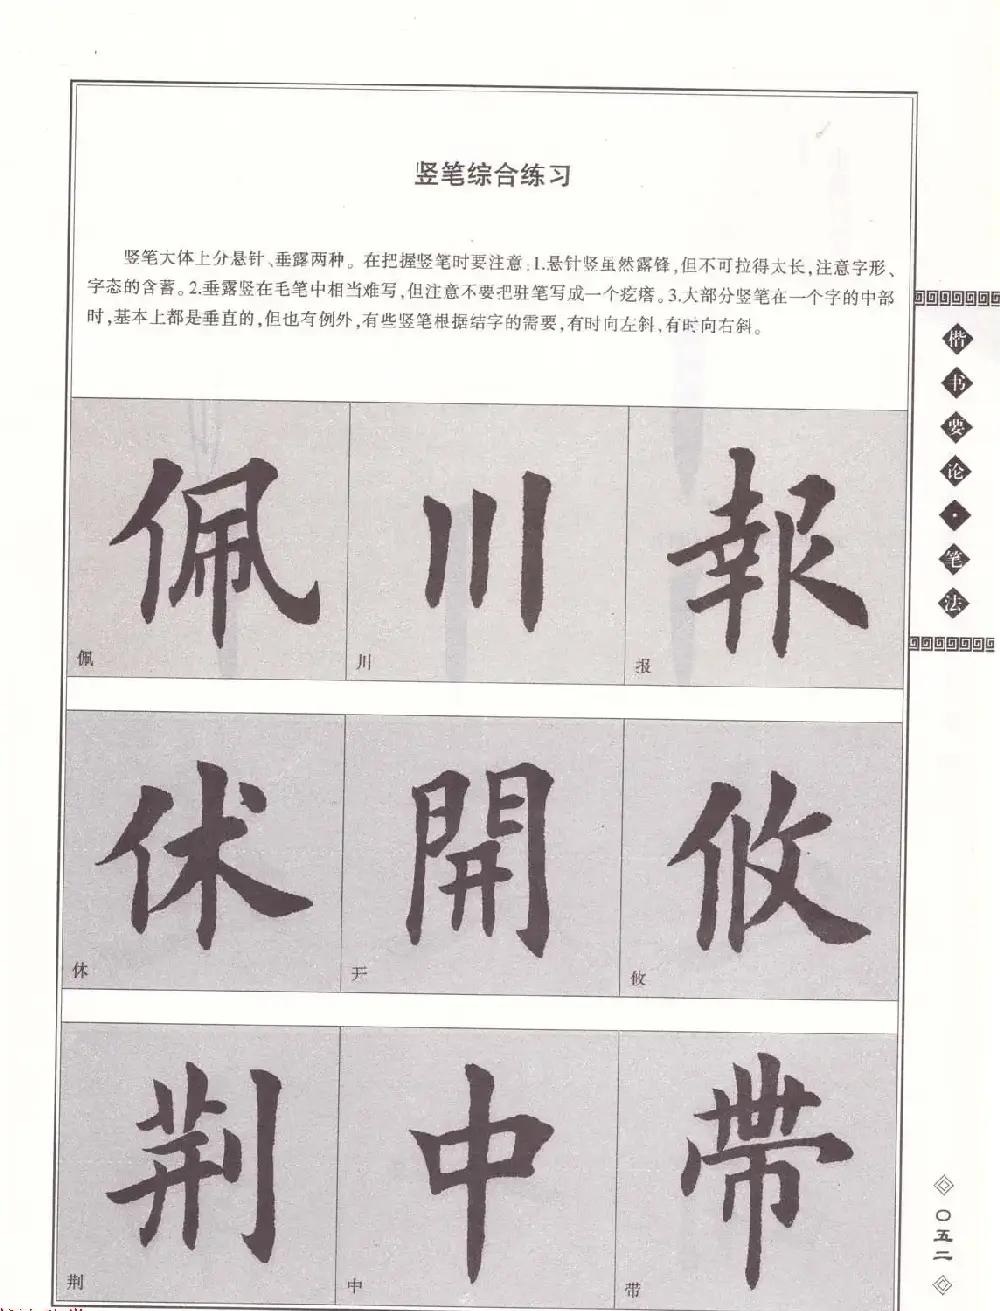 竖笔综合练习
竖笔大体上分悬针、垂露两种。在把握竖笔时要注意:1.悬针竖虽然露锋,但不可拉得太长,注意字形、
字态的含蓄。2.垂露竖在毛笔中相当难写,但注意不要把驻笔写成一个疙瘩。3.大部分竖笔在一个字的中部
时,基本上都是垂直的,但也有例外,有些竖笔根据结字的需要,有时向左斜、有时向右斜。
佩 川 報
佩 川 报
休 開 攸
休 开 攸
荆 中 帶
荆 中 带
楷书要论·笔法
〇五二